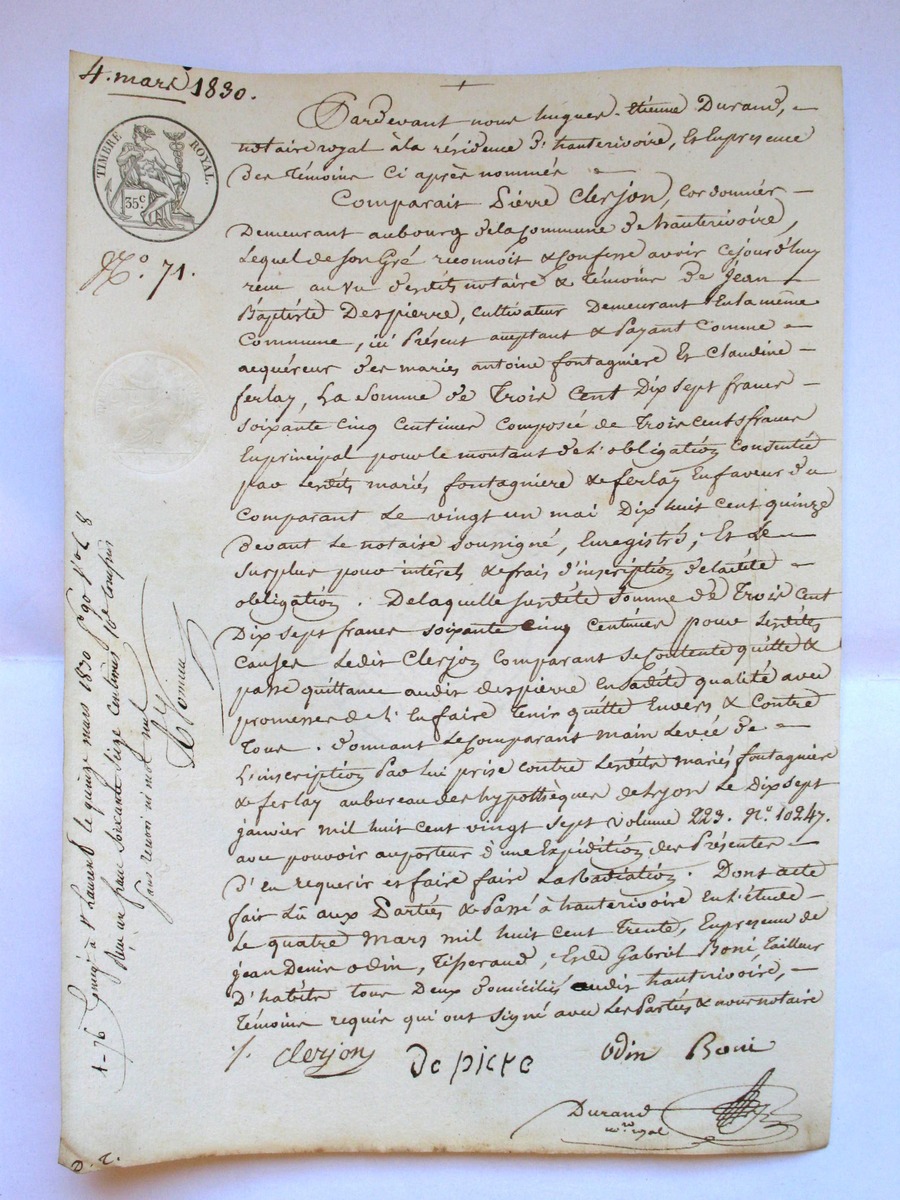 4. mars 1830.
TIMBRE ROYAL.
35 c.
N.º 71.
Pardevant nous hugues-étienne Durand, -
notaire royal à la résidence d'hauterivoire, et en presence
des témoins ci après nommés -
Comparait Pierre Clerjon, Cordonnier -
Demeurant au bourg de la Commune de hauterivoire,
Lequel de son Gré reconnoit & Confesse avoir cejourd'huy
reçu au vu desdits notaire & témoins de jéan -
Baptiste Despierre, cultivateur Demeurant en la même
Commune, ici Présent acceptant & Payant Comme -
acquéreur des mariés antoine fontagniere Et Claudine -
ferlay, La Somme de Trois Cent Dix sept francs -
soixante cinq Centimes Composée de Trois cents francs
En principal pour le montant de l'obligation Consentie
par lesdits mariés fontagniere & ferlay En faveur du
Comparant Le vingt un mai Dix huit cent quinze
devant Le notaire soussigné, Enregistrée; Et Le -
surplus pour intérêts & frais d'inscription de ladite -
obligation. De laquelle susdite somme de Trois Cent
Dix sept francs soixante cinq Centimes pour lesdites
Causes Ledit Clerjon Comparant se Contente quitte &
passe quittance audit despierre En sadite qualité avec
promesse de l'En faire Tenir quitte Envers & Contre
Tous. donnant Le Comparant main Levée de -
L'inscription Par lui prise contre lesdits mariés fontagniere
& ferlay au bureau des hypothèques de Lyon Le Dix sept
janvier mil huit cent vingt sept volume 223. N.º 10247.
avec pouvoir au porteur d'une Expédition des Présentes -
D'en requerir et faire faire La Radiation. Dont acte
fait Lû aux Parties & Passé à hauterivoire En l'étude -
Le quatre mars mil huit cent trente, En presence de
jean Denis odin, Tisserand, & de Gabriel Boni, Tailleur
D'habits tous Deux domiciliés audit hauterivoire, -
Témoins requis qui ont signé avec Les Parties & nous notaire
Clerjon De pierre odin Boni
Durand
n.re royal
Enreg.é à S.t Laurent le quinze mars 1830 f.º 90 R.º C 8
reçu un franc soixante seize Centimes 10.e compris
sans renvoi ni mot nul
D. T.